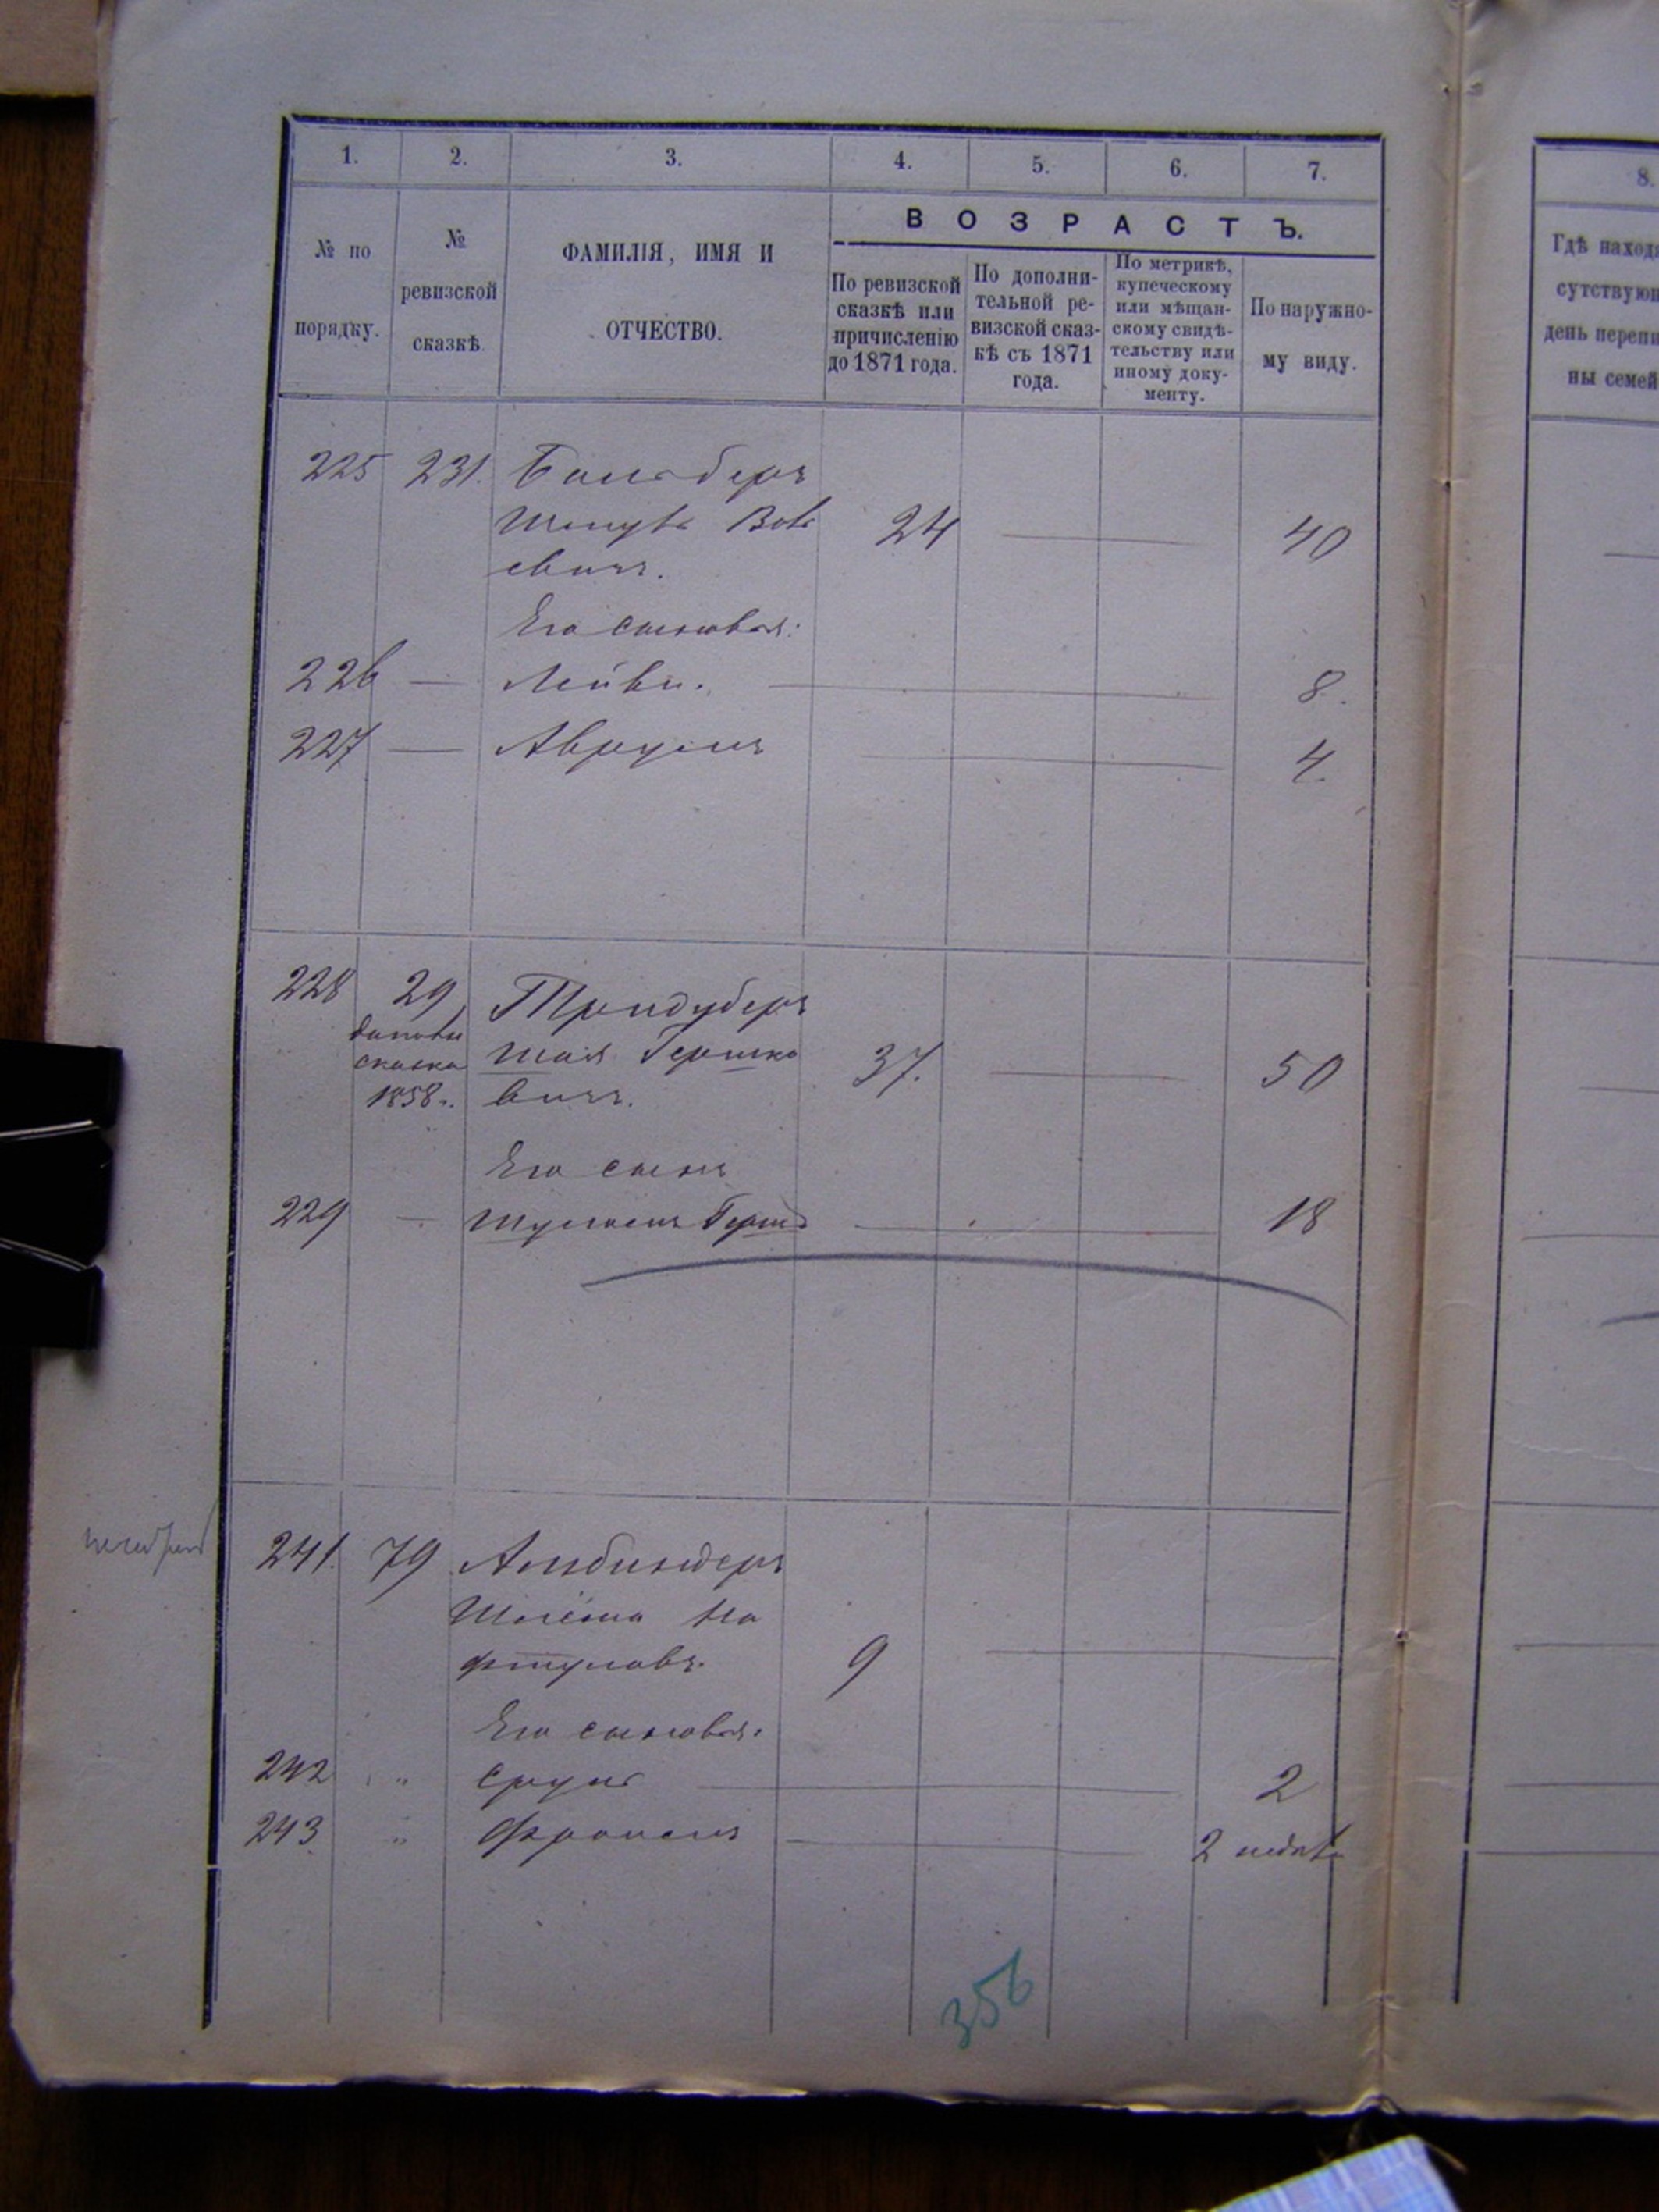 1. 2. 3. 4. 5. 6. 7.
№ по порядку.
№ ревизской сказкѣ.
ФАМИЛІЯ, ИМЯ И ОТЧЕСТВО.
ВОЗРАСТЪ.
По ревизской сказкѣ или причисленію до 1871 года.
По дополнительной ревизской сказкѣ съ 1871 года.
По метрикѣ, купеческому или мѣщанскому свидѣтельству или иному документу.
По наружному виду.
225 231.
24 40
евичъ.
Его сыновья:
226 — Лейви. 8.
227 — Аврумъ 4.
228 29 Тридуберъ
сказка Шая Гершко 37. 50
1858 г. вичъ.
Его сынъ
229 — Герш 18
241. 79
Шлёма На
фтуловъ. 9
Его сыновья:
242 " Сруль 2
243 " Фроимъ 2 недѣль
356
8.
Гдѣ находя
сутствую
день перепи
ны семей